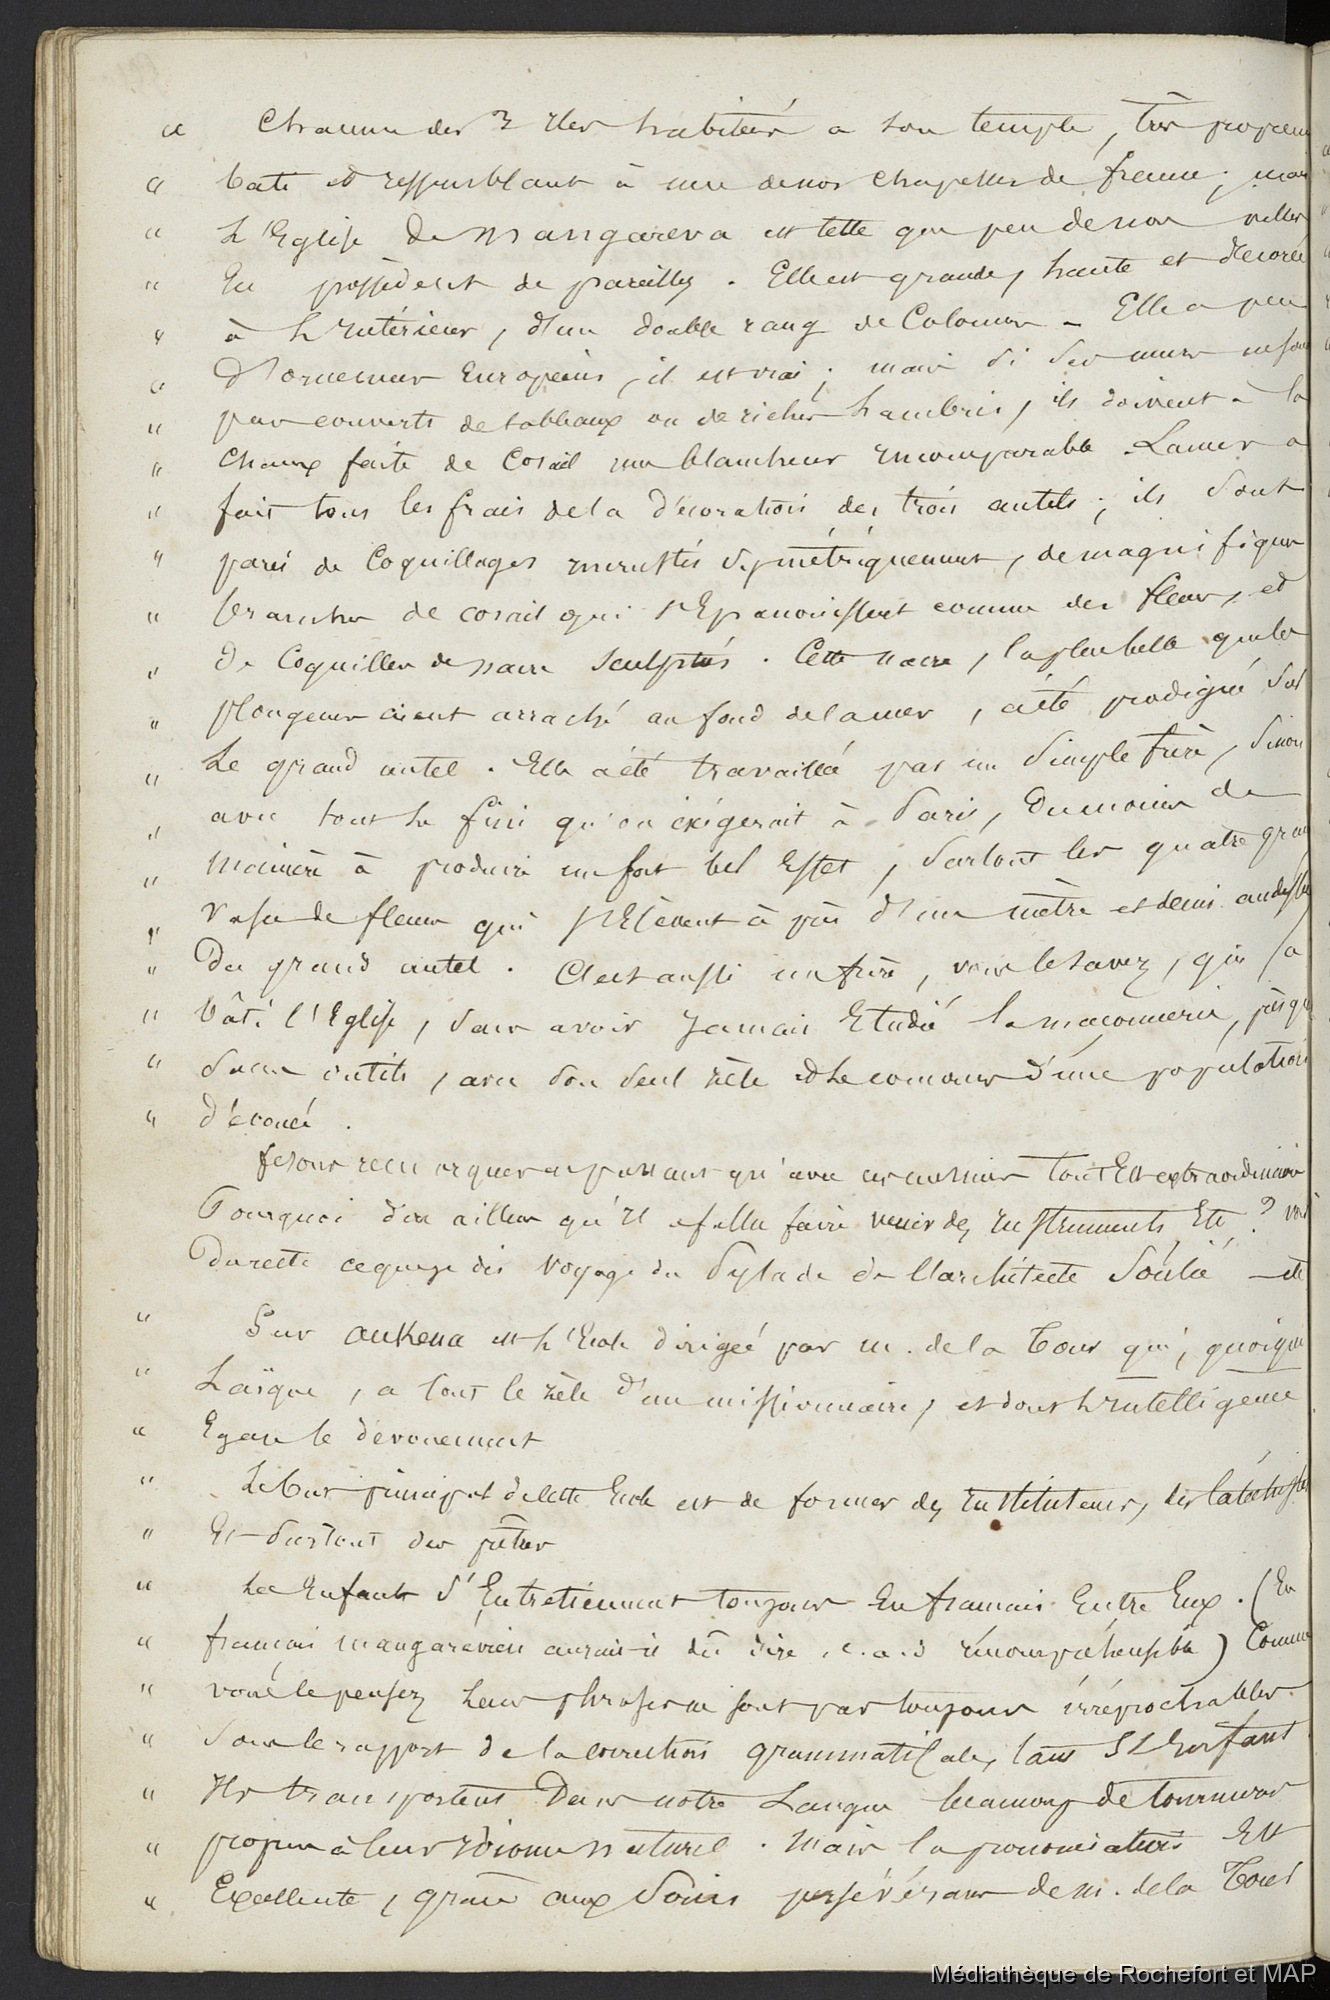 " Chacune des 3 Iles habitées a son temple, très propem
" bâti et ressemblant à une denos chapelles de france ; mais
" L'Eglise De Mangareva est telle que peu denos villes
" En possèdent de pareilles . Elle est grande, haute et décorée
" à L'Intérieur, d'un double rang de Colonnes - Elle a peu
" D'ornemens Européens, il est vrai ; mais si ses murs nesont
" pas couverts detableaux ou deriches Lambris, ils doivent à la
" Chaux faite de Corail une blancheur Incomparable . Lamer a
" fait tous les frais dela Décoration des trois autels ; ils sont
" parés de Coquillages incrustés symétriquement, demagnifiques
" branches de corail qui s'Epanouissent comme des fleurs, et
" De Coquilles denacre sculptées . Cette nacre, laplus belle queles
" plongeurs aient arraché aufond delamer, aété prodiguée sur
" Le grand autel . Elle aété travaillée par un simple frère, sinon
" avec tout le fini qu'on éxigerait à Paris, Dumoins de
" manière à produire unfort bel Effet, surtout les quatre gran
" Vases de fleurs qui s'Elèvent à près d'un mètre etdemi audessus
" Du grand autel . C'est aussi unfrère, vous lesavez, qui a
" bâti l'Eglise, sans avoir Jamais Etudié la maçonnerie, presque
" Sans outils, avec son seul zèle etLeconcours d'une population
" dévouée .
fesons remarquer enpassant qu'avec cesmessieurs tout Est extraordinaire
Pourquoi d'un ailleurs qu'Il afallu faire venir des Instruments Etc ? voir
Dureste ceque je dis Voyage du Pylade De L'architecte Soulié - etc
" Sur aukena est L'Ecole dirigée par m. dela Tour qui, quoique
" Laïque, a tout le zèle d'un missionnaire, et dont L'Intelligence
" Egale le dévouement
" Lebut principal decette Ecole est de former des Instituteurs, des Catéchistes
" Et surtout des prêtres
" Les Enfants s'Entretiennent toujours En français Entre Eux . (En
" français mangarévien aurait-il dû dire, c.a.d Incompréhensible) Comme
" vous le pensez Leurs phrases ne sont pas toujours irréprochables
" sous lerapport delacorrection grammaticale, tant s'en faut
" Ils transportent Dans notre Langue beaucoup detournures
" propres à leur Idiome naturel . Mais la prononciation Est
" Excellente, grâce aux Soins persévérans dem. dela Tour
Médiathèque de Rochefort et MAP